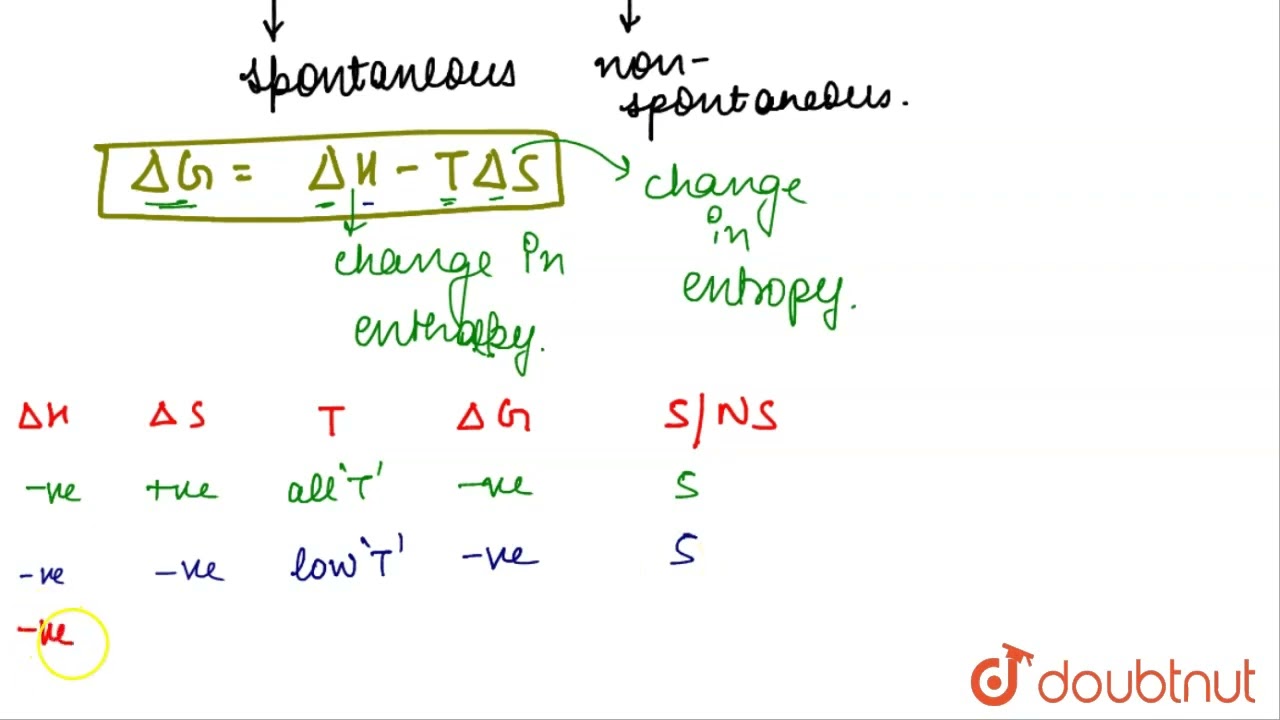 spontaneous
non-
spontaneous.
ΔG = ΔH - TΔS
change
in
entropy.
change in
enthalpy.
ΔH ΔS T ΔG S/NS
-ve +ve all 'T' -ve S
-ve -ve low 'T' -ve S
-ve
doubtnut